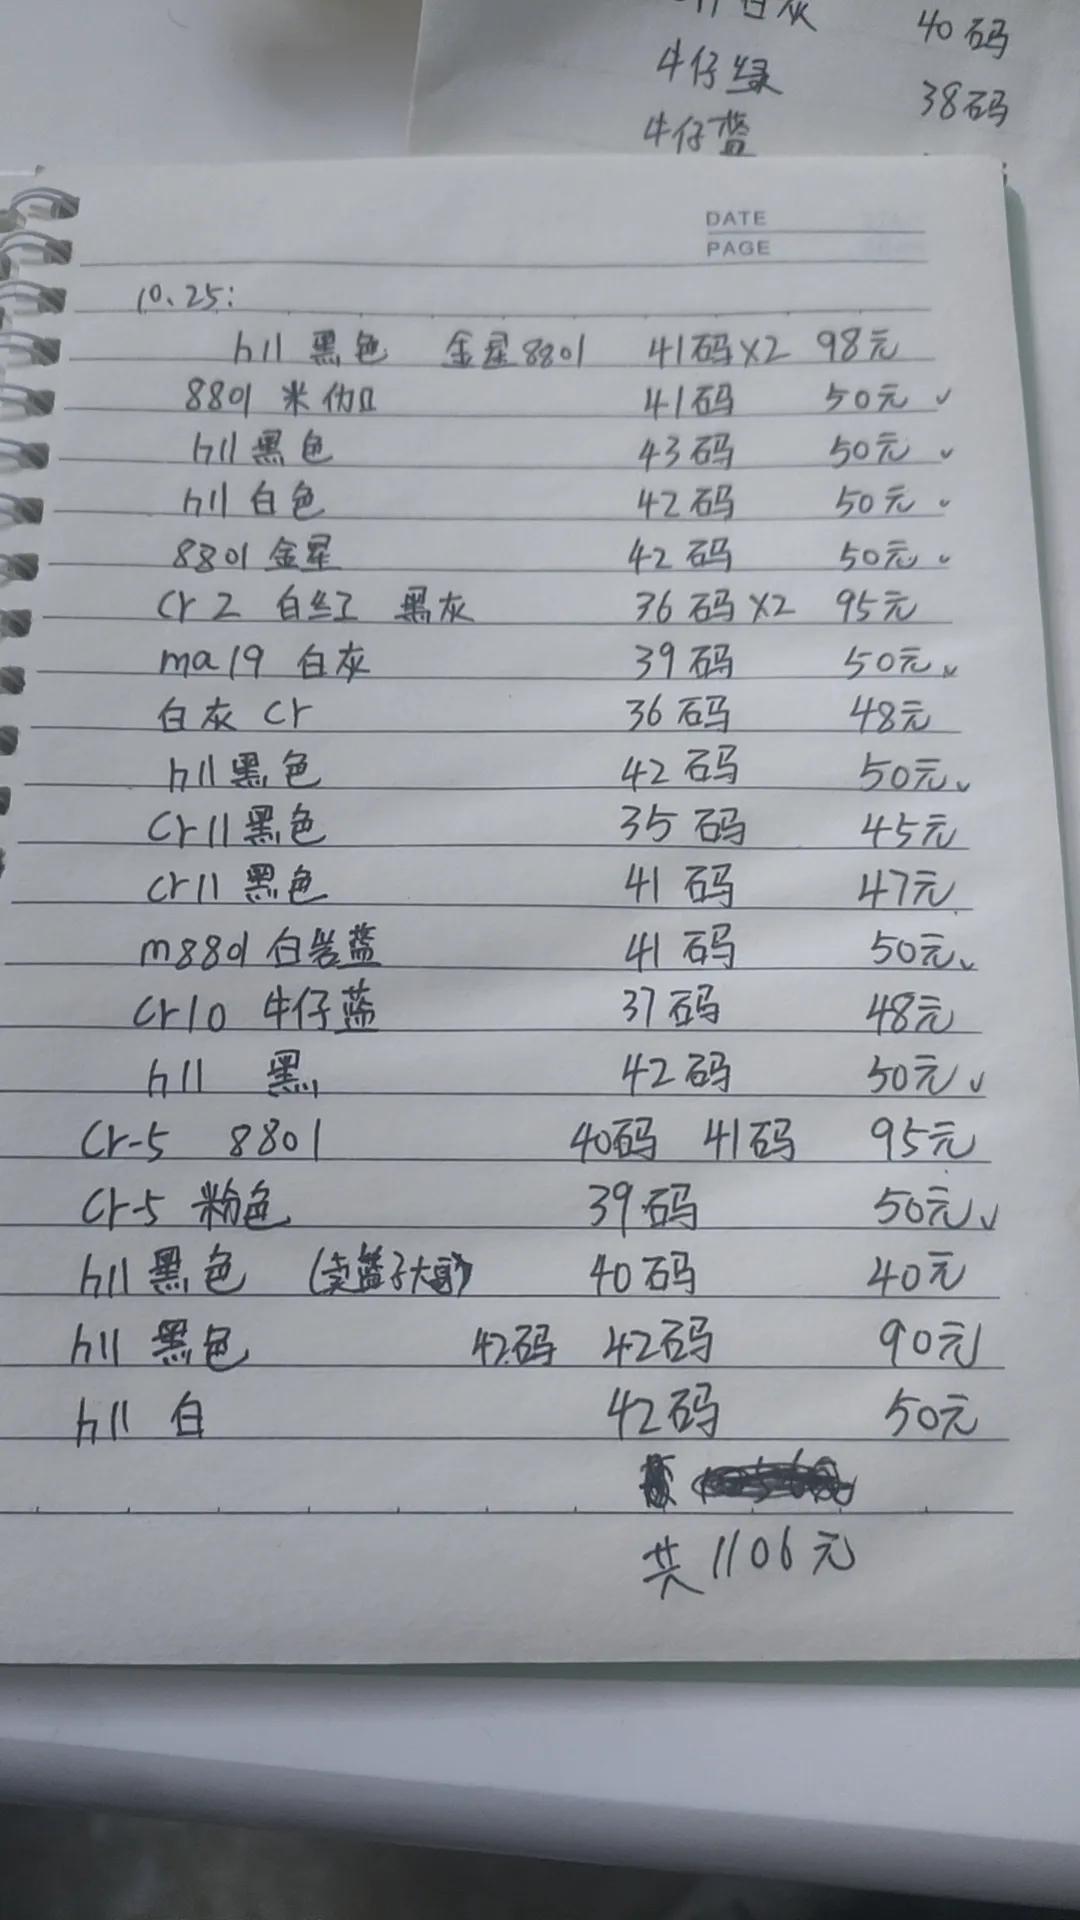 白灰 40码
牛仔绿 38码
牛仔蓝
DATE
PAGE
10.25:
h11 黑色 金星8801 41码X2 98元
8801 米 41码 50元 ✓
h11 黑色 43码 50元 ✓
h11 白色 42码 50元 ✓
8801 金星 42码 50元 ✓
Cr 2 白红 黑灰 36码X2 95元
ma19 白灰 39码 50元 ✓
白灰 Cr 36码 48元
h11 黑色 42码 50元 ✓
Cr11 黑色 35码 45元
Cr11 黑色 41码 47元
m8801 白 蓝 41码 50元 ✓
Cr10 牛仔蓝 37码 48元
h11 黑 42码 50元 ✓
Cr-5 8801 40码 41码 95元
Cr-5 粉色 39码 50元 ✓
h11 黑色 (卖篮子大哥) 40码 40元
h11 黑色 42码 42码 90元
h11 白 42码 50元
共 1106元